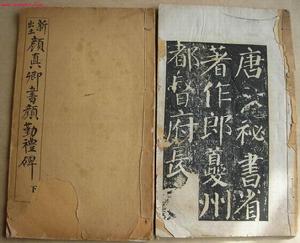 新出土
顏真卿書顏勤禮碑
下
唐故秘書省
著作郎夔州
都督府長